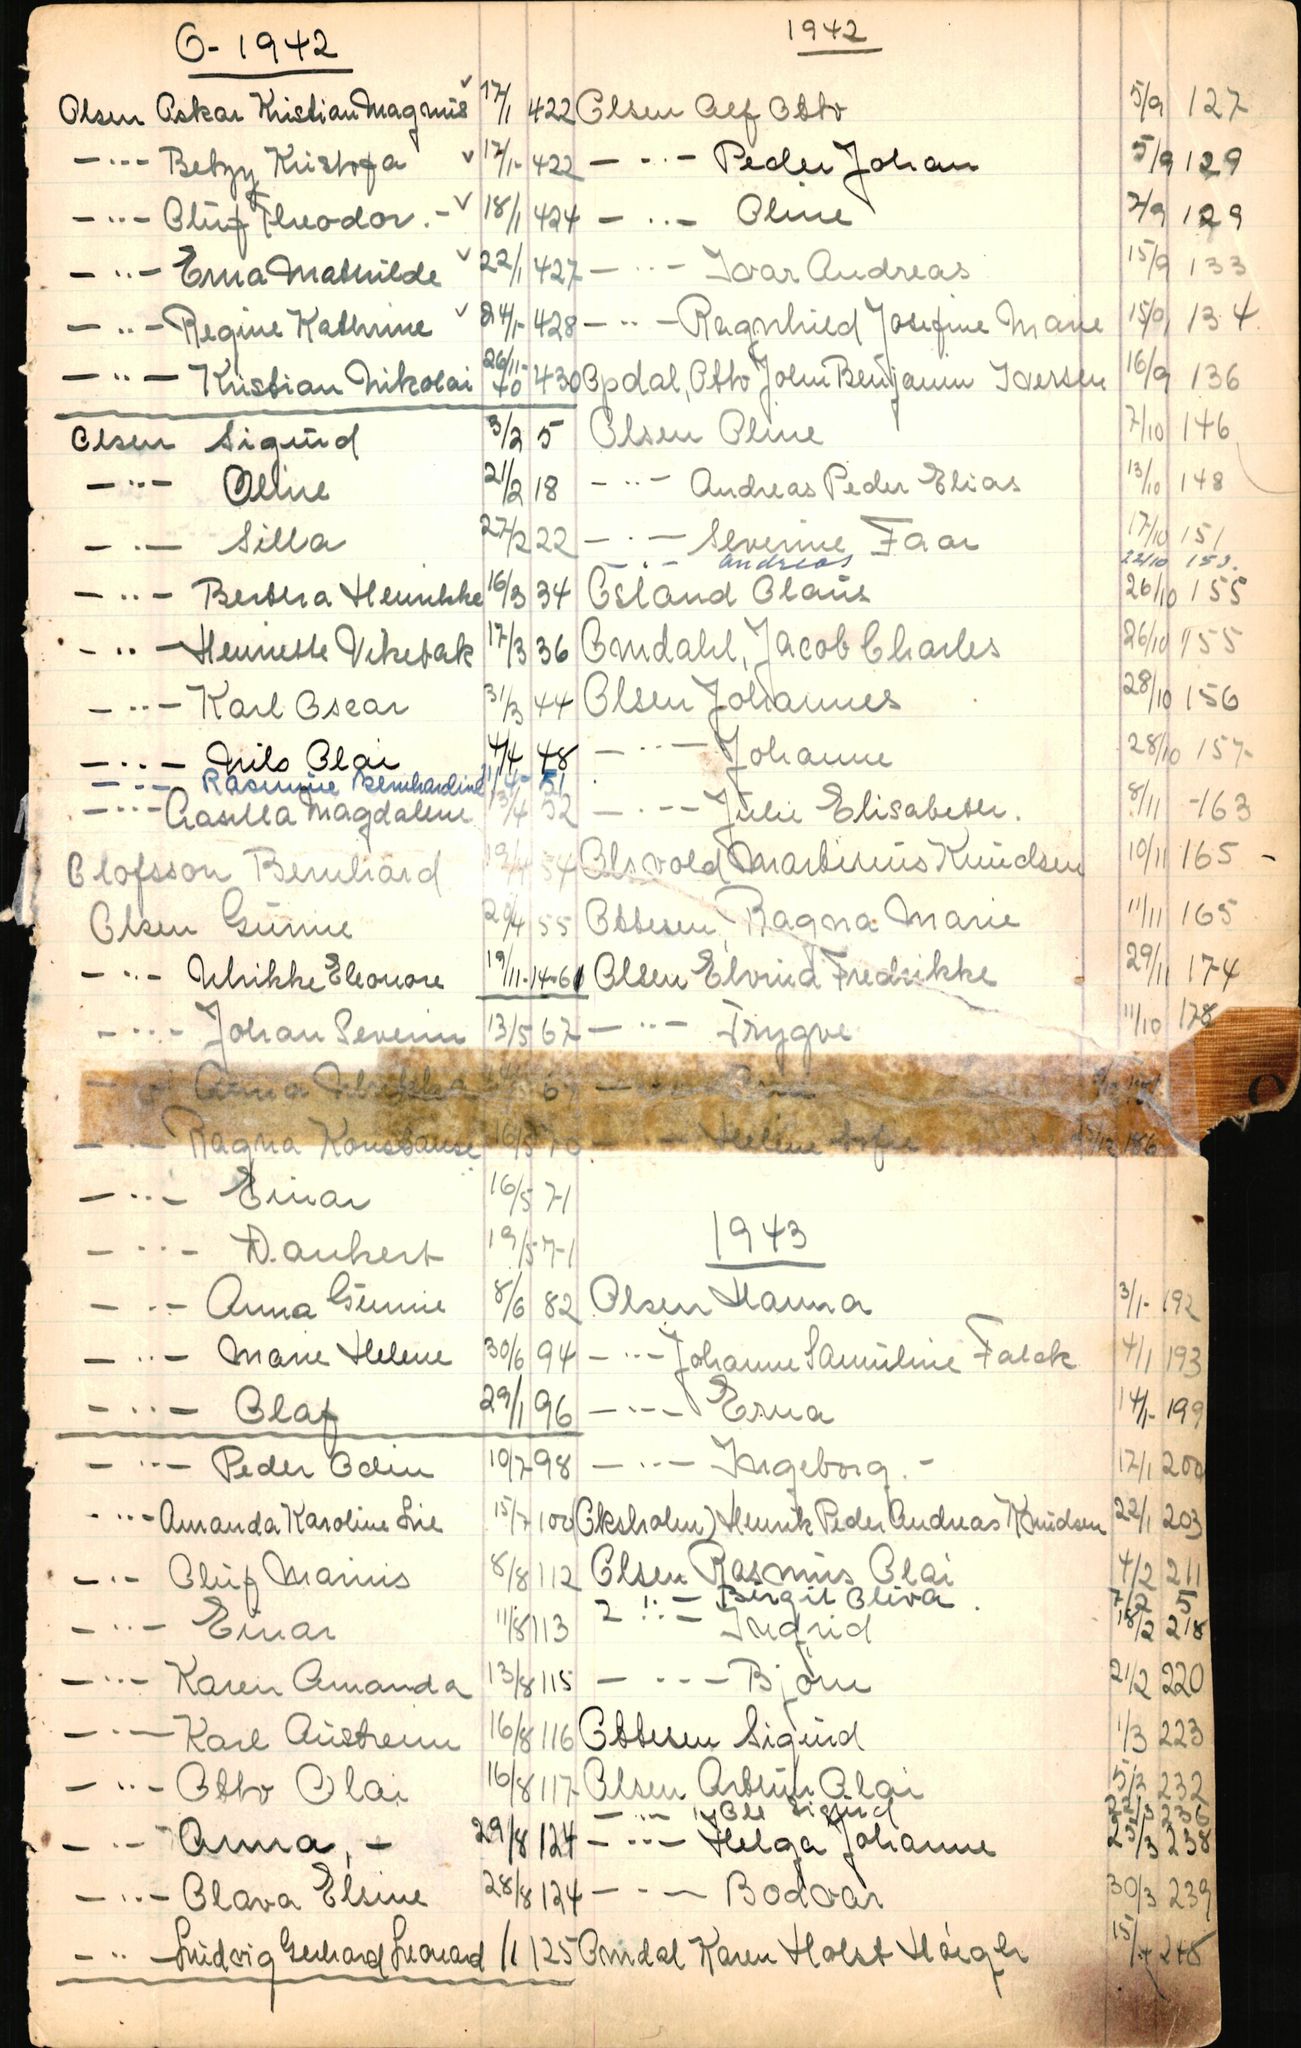 O - 1942
Olsen Oskar Kristian Magnus ✓ 17/1 422
- " - Betzy Kristofa ✓ 17/1- 422
- " - Oluf Theodor. - ✓ 18/1 424
- " - Erna Mathilde ✓ 22/1 427
- " - Regine Kathrine ✓ 24/1- 428
- " - Kristian Nikolai 26/11-40 430
Olsen Sigurd 3/2 5
- " - Oline 21/2 18
- " - Silla 27/2 22
- " - Berthra Henrikke 16/3 34
- " - Henriette Viketak 17/3 36
- " - Karl Oscar 31/3 44
- " - Nils Olai 4/4 48
- " - Rasmine Bernhardine 11/4- 51
- " - Magdalene 13/4 52
Olofsson Bernhard 54
Olsen Gunne 55
- " - Ulrikke Eleonore 19/11-14- 61
- " - Johan Severin 13/5 67
- " - Anna 67
- " - Ragna Konstanse 16/5 70
- " - Einar 16/5 71
- " - Dankert 19/5 71
- " - Anna Gunnie 8/6 82
- " - Marie Helene 30/6 94
- " - Olaf 29/1 96
- " - Peder Odin 10/7 98
- " - Amanda Karoline Lie 15/7 100
- " - Oluf Marius 8/8 112
- " - Einar 11/8 113
- " - Karen Amanda 13/8 115
- " - Karl Austrein 16/8 116
- " - Otto Olai 16/8 117
- " - Anna, - 29/8 124
- " - Olava Elsine 28/8 124
- " - Ludvig Gerhard Leonard 1/1 125
1942
Olsen Alf Otto 5/9 127
- " - Peder Johan 5/9 129
- " - Oline 7/9 129
- " - Ivar Andreas 15/9 133
- " - Ragnhild Josefine Marie 15/9 134
Opdal, Otto John Benjamin Iversen 16/9 136
Olsen Oline 7/10 146
- " - Andreas Peder Elias 13/10 148
- " - Severine Faar 17/10 151
- " - Andreas 22/10 153.
Osland Olaus 26/10 155
Omdahl, Jacob Charles 26/10 155
Olsen Johannes 28/10 156
- " - Johanne 28/10 157
- " - Julie Elisabeth. 8/11 -163
Olsvold Martinius Knudsen 10/11 165 -
Ottesen, Ragna Marie 11/11 165
Olsen Elvina Fredrikke 29/11 174
- " - Trygve 11/10 178
- " - Helene Sofie 186
1943
Olsen Hanna 3/1- 192
- " - Johanne Samuline Falck 4/1 193
- " - Erna 14/1- 199
- " - Ingeborg. - 17/1 200
(Oksholm) Henrik Peder Andreas Knudsen 22/1 203
Olsen Rasmus Olai 4/2 211
- " - Birgit Oliva. 7/2 5
- " - Ingrid 18/2 218
- " - Bjørn 21/2 220
Ottesen Sigurd 1/3 223
Olsen Arthur Olai 5/3 232
- " - Ole Sigurd 22/3 236
- " - Helga Johanne 23/3 238
- " - Bodvar 30/3 239
Omdal Karen Holst 15/4 248